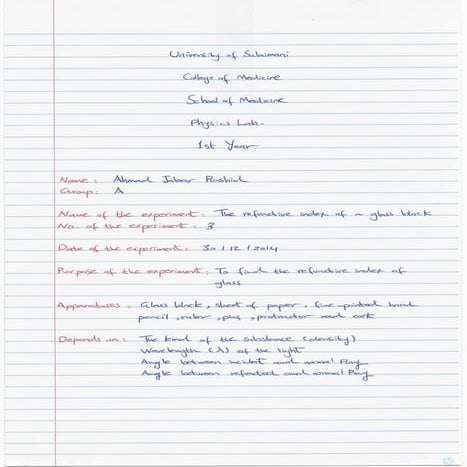 University of Sulaimani
College of Medicine
School of Medicine
Physics Lab.
1st Year
Name : Ahmad Jabar Rashid
Group : A
Name of the experiment : The refractive index of a glass block
No. of the experiment : 3
Date of the experiment : 30 / 12 / 2014
Purpose of the experiment : To find the refractive index of
glass
Apparatuses : Glass block , sheet of paper , fine-pointed hard
pencil , ruler , pins , protractor and cork
Depends on : The kind of the substance (density)
Wavelength (λ) of the light
Angle between incident and normal Ray
Angle between refracted and normal Ray